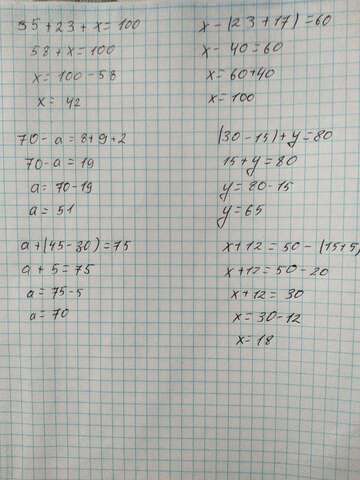 35 + 23 + x = 100
58 + x = 100
x = 100 - 58
x = 42
70 - a = 8 + 9 + 2
70 - a = 19
a = 70 - 19
a = 51
a + (45 - 30) = 75
a + 5 = 75
a = 75 - 5
a = 70
x - (23 + 17) = 60
x - 40 = 60
x = 60 + 40
x = 100
(30 - 15) + y = 80
15 + y = 80
y = 80 - 15
y = 65
x + 12 = 50 - (15 + 5)
x + 12 = 50 - 20
x + 12 = 30
x = 30 - 12
x = 18